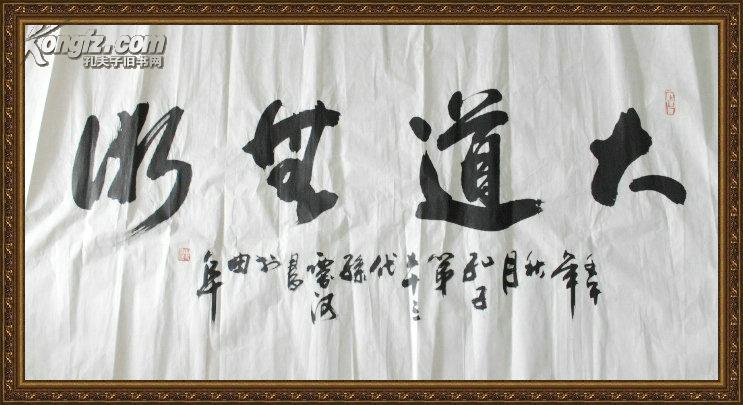 Kongfz.com
孔夫子旧书网
大道無
壬午年秋月孔子第七十三代孫雲書於曲阜